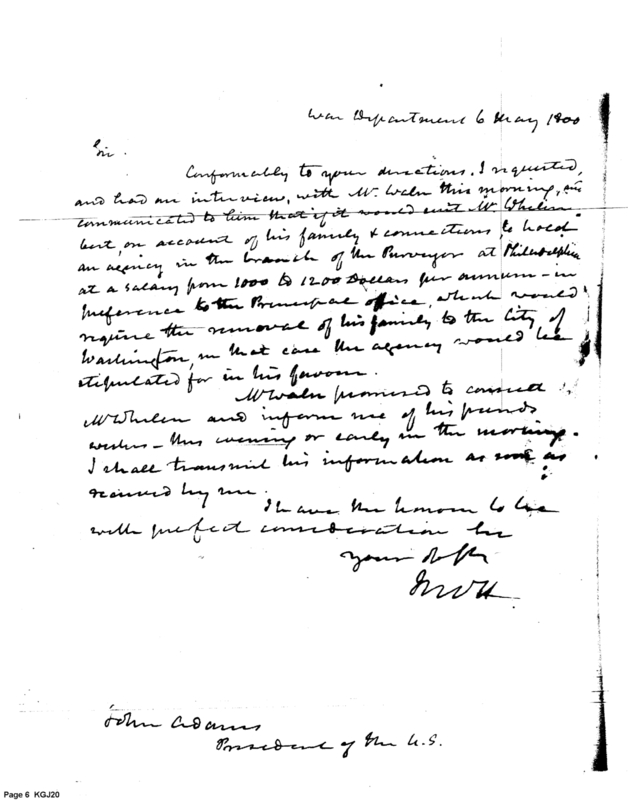 War Department 6 May 1800
Sir.
Conformably to your directions, I requested,
and had an interview, with Mr. Waln this morning, and
communicated to him that if it would suit Mr. Whelen
best, on account of his family & connections, to hold
an agency in the branch of the Purveyor at Philadelphia
at a salary from 1000 to 1200 Dollars per annum - in
preference to the Principal office, which would
require the removal of his family to the City of
Washington, in that case the agency would be
stipulated for in his favour.
Mr Waln promised to consult
Mr Whelen and inform me of his friends
wishes - this evening or early in the morning.
I shall transmit his information as soon as
received by me.
I have the honour to be
with perfect consideration
your
John Adams
President of the U.S.
Page 6 KGJ20